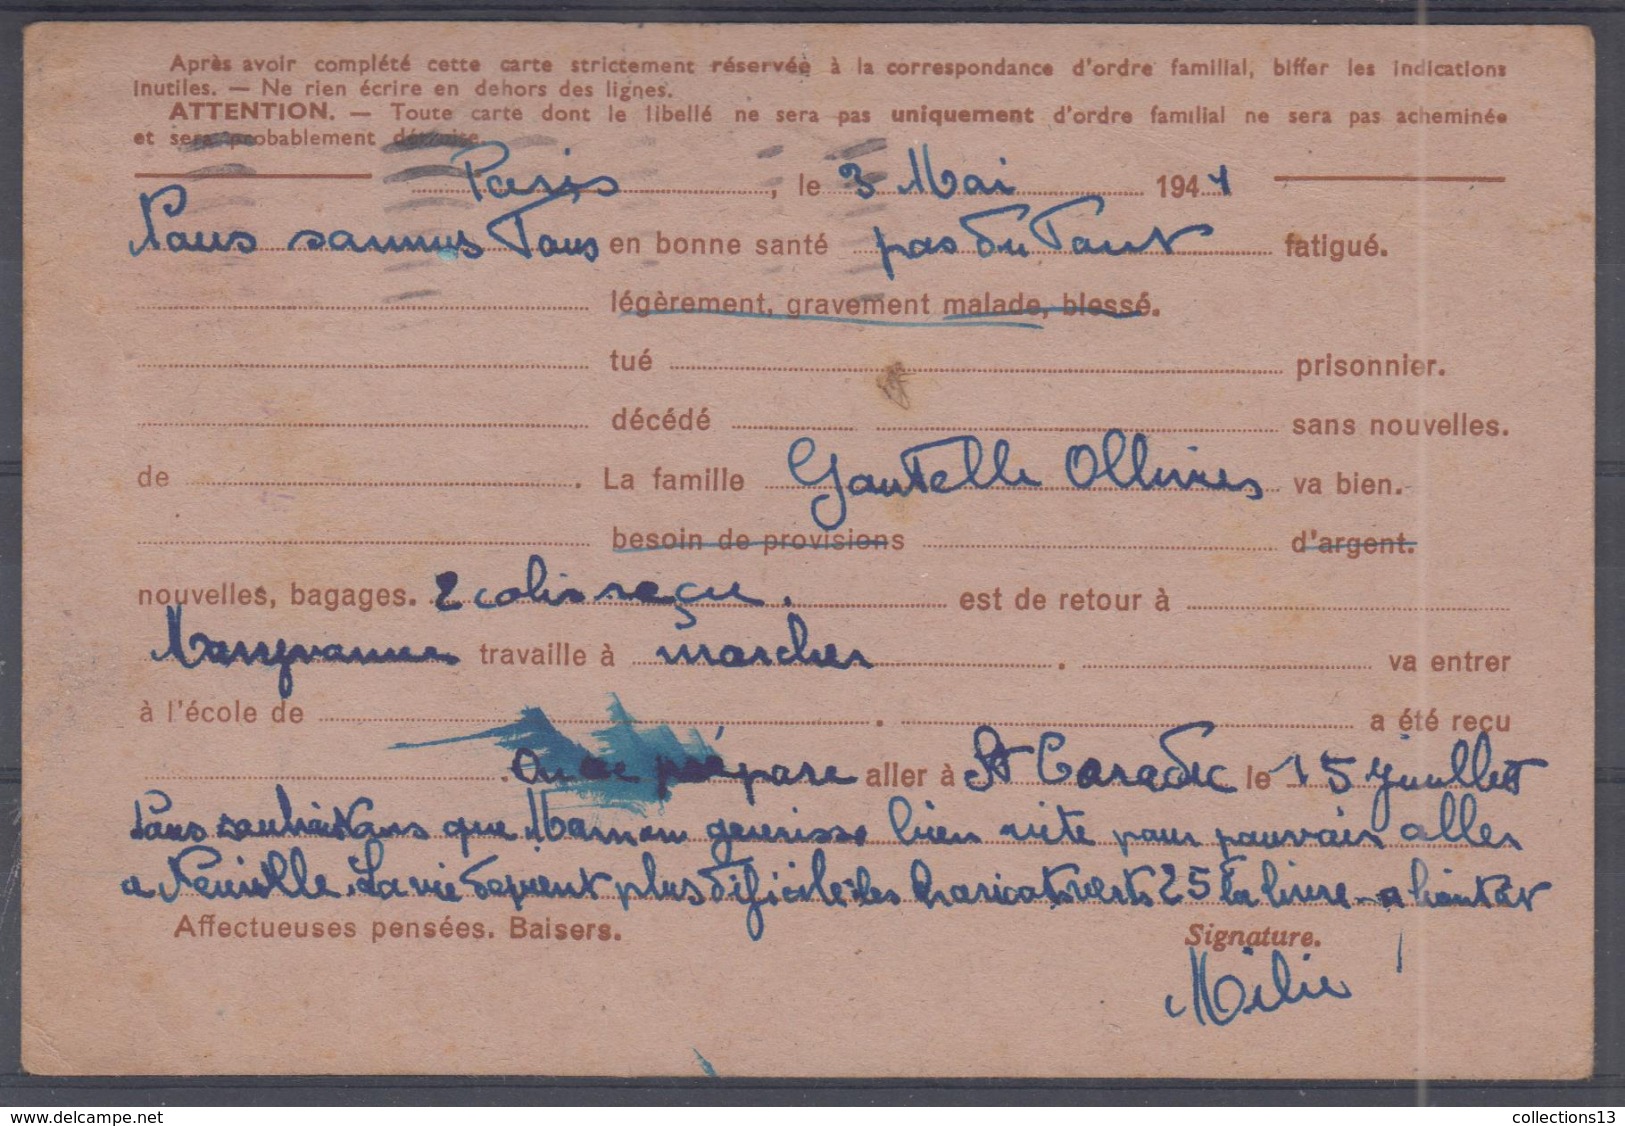 Après avoir complété cette carte strictement réservée à la correspondance d'ordre familial, biffer les indications
inutiles. — Ne rien écrire en dehors des lignes.
ATTENTION. — Toute carte dont le libellé ne sera pas uniquement d'ordre familial ne sera pas acheminée
et sera probablement détruite.
Paris, le 3 Mai 1941
Nous sommes Tous en bonne santé pas du Tout fatigué.
légèrement, gravement malade, blessé.
tué prisonnier.
décédé sans nouvelles.
de . La famille Gautelle Ollivies va bien.
besoin de provisions d'argent.
nouvelles, bagages. 2 colis reçu. est de retour à
travaille à marcher . va entrer
à l'école de . a été reçu
. On se prépare aller à St Caradec le 15 juillet
souhaitons que Maman guerisse bien vite pour pouvoir aller
a La vie devient plus dificile les haricots verts 25 la livre a bientot
Affectueuses pensées. Baisers. Signature.
Milie
collections-cartes-timbres.com
collections13